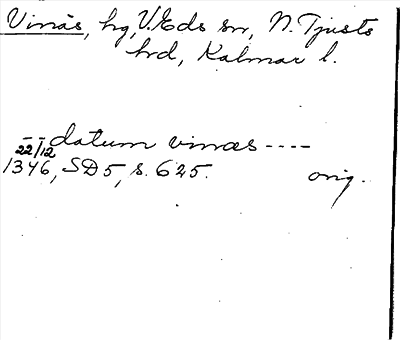 Vinäs, hg, V. Eds sn, N. Tjusts
hrd, Kalmar l.
-- datum vinæs ----
22/12
1346, SD5, s. 625. orig.